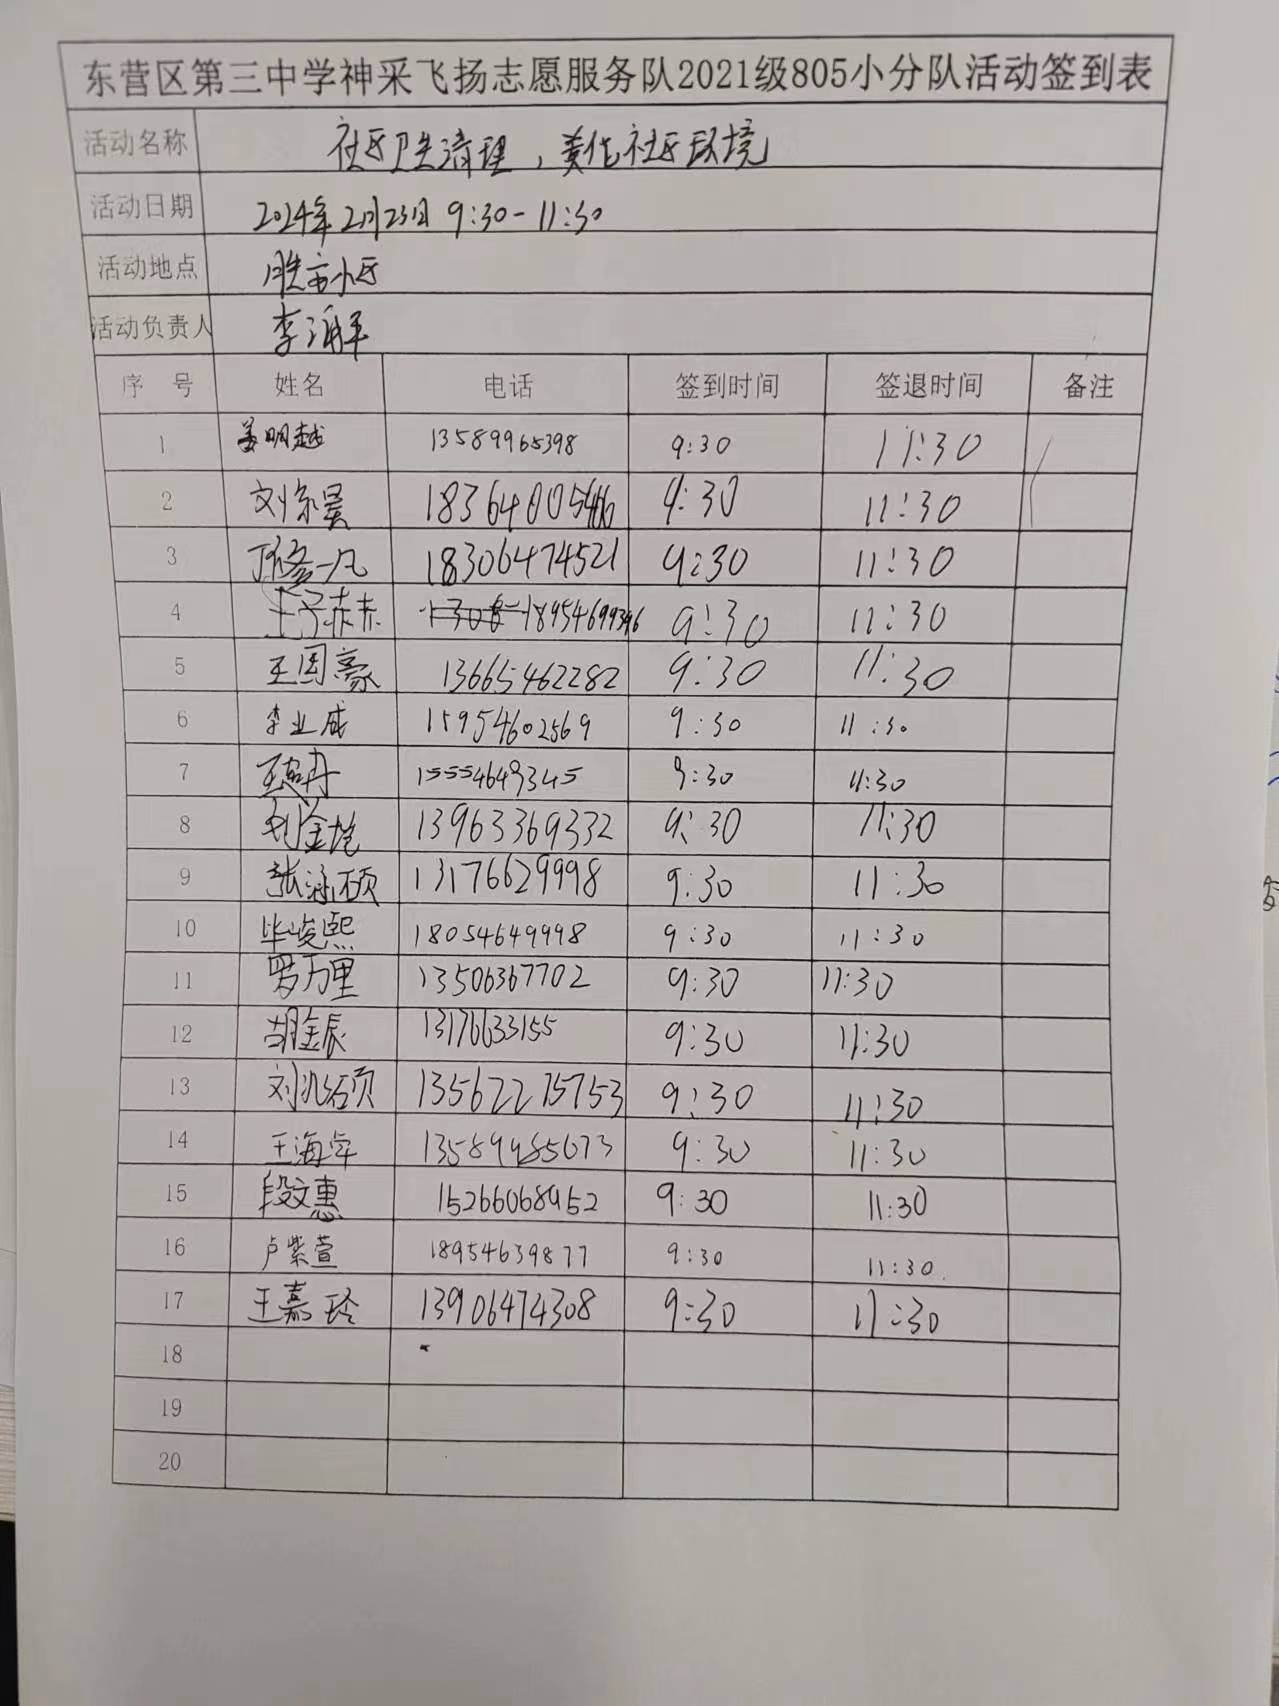 东营区第三中学神采飞扬志愿服务队2021级805小分队活动签到表
活动名称 社区卫生清理，美化社区环境
活动日期 2024年2月23日 9:30-11:30
活动地点 胜方小区
活动负责人 李
序 号 姓名 电话 签到时间 签退时间 备注
1 姜明越 13589965398 9:30 11:30
2 刘家昊 9:30 11:30
3 一凡 18306474521 9:30 11:30
4 王子赤赤 18954699396 9:30 11:30
5 王国豪 13665462282 9:30 11:30
6 李业成 15954602569 9:30 11:30
7 王 15554649345 9:30 11:30
8 刘金 13963369332 9:30 11:30
9 张涵硕 13176629998 9:30 11:30
10 毕峻熙 18054649998 9:30 11:30
11 罗万里 13506367702 9:30 11:30
12 胡金辰 13176633155 9:30 11:30
13 刘 13562275753 9:30 11:30
14 王海 13589985673 9:30 11:30
15 段文惠 15266068952 9:30 11:30
16 卢紫萱 18954639877 9:30 11:30
17 王嘉玲 13906474308 9:30 11:30
18
19
20